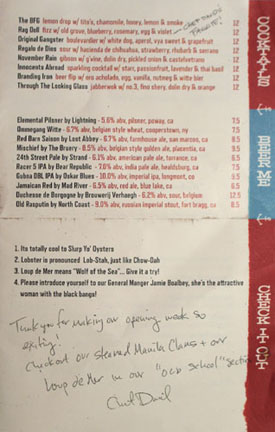 The BFG lemon drop w/ tito's, chamomile, honey, lemon & smoke 12
Rag Doll fizz w/ old grove, blueberry, rosemary, egg & violet 12
Original Gangster boulevardier w/ white dog, aperol, vya sweet & grapefruit 12
Regalo de Dino sour w/ hacienda de chihuahua, strawberry, rhubarb & serrano 12
November Rain gimlet w/ g'vine, dolin dry, pickled onion & castelvetrano 12
Innocents Abroad sparkling cocktail w/ st. passionfruit, lavender & thai basil 12
Branding Iron beer flip w/ oro, egg, vanilla, nutmeg & witte bier 12
Through The Looking Glass jabberwok w/ no.3, fino sherry, dolin dry & orange 12
COCKTAILS
Elemental Pilsner by Lightning - 5.6% abv, pilsner, poway, ca 7.5
Ommegang Witte - 6.7% abv, belgian style wheat, cooperstown, ny 7.5
Red Barn Saison by Lost Abbey - 6.7% abv, farmhouse ale, san marcos, ca 8.5
Mischief by The Bruery - 8.5% abv, belgian style golden ale, placentia, ca 9.5
24th Street Pale by Strand - 6.1% abv, american pale ale, torrance, ca 6.5
Racer 5 IPA by Bear Republic - 7.0% abv, india pale ale, healdsburg, ca 7.5
Gubna DBL IPA by Oskar Blues - 10.0% abv, imperial ipa, longmont, co 9.5
Jamaican Red by Mad River - 6.5% abv, red ale, blue lake, ca 6.5
Duchesse de Bourgogne by Brouwerij Verhaegh - 6.2% abv, sour, belgium 12.5
Old Rasputin by North Coast - 9.0% abv, russian imperial stout, fort bragg, ca 8.5
BEER ME
1. Its totally cool to Slurp Yo' Oysters
2. Lobster is pronounced Lob-Stah, just like Chow-Dah
3. Loup de Mer means "Wolf of the Sea"... Give it a try!
4. Please introduce yourself to our General Manger Jamie Boalbey, she's the attractive
woman with the black bangs!
CHECK IT OUT
Thank you for making our opening week so
exciting!
Checkout our steamed Manila Clams + our
Loup de Mer in our "old school" section